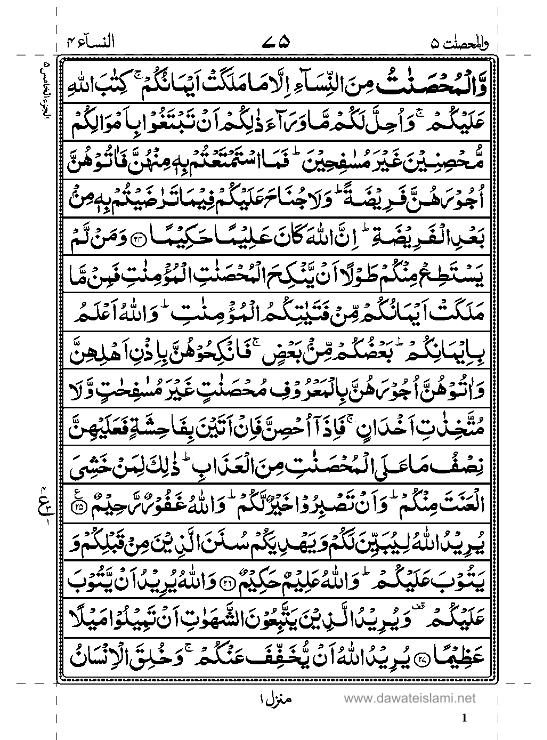 والمحصنت ۵ ۷۵ النسآء ۴
الجزء الخامس ۵
وَّالْمُحْصَنٰتُ مِنَ النِّسَآءِ اِلَّا مَا مَلَكَتْ اَيْمَانُكُمْ ۚ كِتٰبَ اللّٰهِ
عَلَيْكُمْ ۚ وَاُحِلَّ لَكُمْ مَّا وَرَآءَ ذٰلِكُمْ اَنْ تَبْتَغُوْا بِاَمْوَالِكُمْ
مُّحْصِنِيْنَ غَيْرَ مُسٰفِحِيْنَ ؕ فَمَا اسْتَمْتَعْتُمْ بِهٖ مِنْهُنَّ فَاٰتُوْهُنَّ
اُجُوْرَهُنَّ فَرِيْضَةً ؕ وَلَا جُنَاحَ عَلَيْكُمْ فِيْمَا تَرٰضَيْتُمْ بِهٖ مِنْۢ
بَعْدِ الْفَرِيْضَةِ ؕ اِنَّ اللّٰهَ كَانَ عَلِيْمًا حَكِيْمًا ﴿۲۴﴾ وَمَنْ لَّمْ
يَسْتَطِعْ مِنْكُمْ طَوْلًا اَنْ يَّنْكِحَ الْمُحْصَنٰتِ الْمُؤْمِنٰتِ فَمِنْ مَّا
مَلَكَتْ اَيْمَانُكُمْ مِّنْ فَتَيٰتِكُمُ الْمُؤْمِنٰتِ ؕ وَاللّٰهُ اَعْلَمُ
بِاِيْمَانِكُمْ ؕ بَعْضُكُمْ مِّنْۢ بَعْضٍ ۚ فَانْكِحُوْهُنَّ بِاِذْنِ اَهْلِهِنَّ
وَاٰتُوْهُنَّ اُجُوْرَهُنَّ بِالْمَعْرُوْفِ مُحْصَنٰتٍ غَيْرَ مُسٰفِحٰتٍ وَّلَا
مُتَّخِذٰتِ اَخْدَانٍ ۚ فَاِذَاۤ اُحْصِنَّ فَاِنْ اَتَيْنَ بِفَاحِشَةٍ فَعَلَيْهِنَّ
نِصْفُ مَا عَلَى الْمُحْصَنٰتِ مِنَ الْعَذَابِ ؕ ذٰلِكَ لِمَنْ خَشِىَ
الْعَنَتَ مِنْكُمْ ؕ وَاَنْ تَصْبِرُوْا خَيْرٌ لَّكُمْ ؕ وَاللّٰهُ غَفُوْرٌ رَّحِيْمٌ ﴿۲۵﴾ ع
يُرِيْدُ اللّٰهُ لِيُبَيِّنَ لَكُمْ وَيَهْدِيَكُمْ سُنَنَ الَّذِيْنَ مِنْ قَبْلِكُمْ وَ
يَتُوْبَ عَلَيْكُمْ ؕ وَاللّٰهُ عَلِيْمٌ حَكِيْمٌ ﴿۲۶﴾ وَاللّٰهُ يُرِيْدُ اَنْ يَّتُوْبَ
عَلَيْكُمْ ۟ وَيُرِيْدُ الَّذِيْنَ يَتَّبِعُوْنَ الشَّهَوٰتِ اَنْ تَمِيْلُوْا مَيْلًا
عَظِيْمًا ﴿۲۷﴾ يُرِيْدُ اللّٰهُ اَنْ يُّخَفِّفَ عَنْكُمْ ۚ وَخُلِقَ الْاِنْسَانُ
منزل ۱
www.dawateislami.net
1